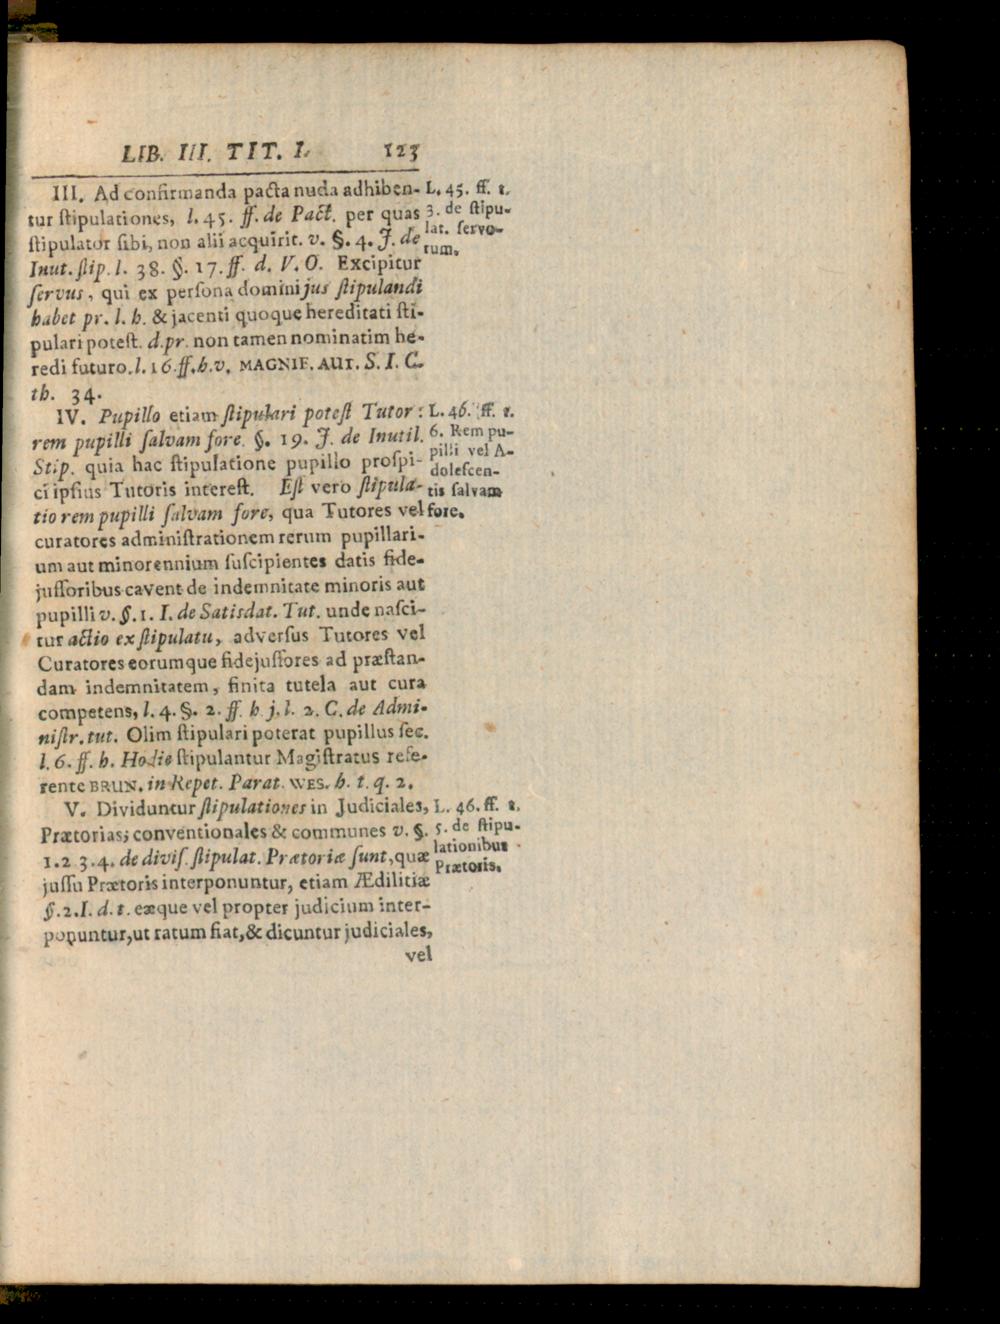 LIB. III. TIT. I. 123
III. Ad confirmanda pacta nuda adhiben-
tur ſtipulationes, l. 45. ff. de Pact. per quas
ſtipulator ſibi, non alii acquirit. v. §. 4. J. de
Inut. ſtip. l. 38. §. 17. ff. d. V. O. Excipitur
ſervus, qui ex perſona domini jus ſtipulandi
habet pr. l. h. & jacenti quoque hereditati ſti-
pulari poteſt. d. pr. non tamen nominatim he-
redi futuro. l. 16. ff. h. v. MAGNIF. AUT. S. I. C.
th. 34.
L. 45. ff. t.
3. de ſtipu-
lat. ſervo-
rum.
IV. Pupillo etiam ſtipulari poteſt Tutor:
rem pupilli ſalvam fore. §. 19. J. de Inutil.
Stip. quia hac ſtipulatione pupillo proſpi-
ci ipſius Tutoris intereſt. Eſt vero ſtipula-
tio rem pupilli ſalvam fore, qua Tutores vel
curatores adminiſtrationem rerum pupillari-
um aut minorennium ſuſcipientes datis fide-
juſſoribus cavent de indemnitate minoris aut
pupilli v. §. 1. I. de Satisdat. Tut. unde naſci-
tur actio ex ſtipulatu, adverſus Tutores vel
Curatores eorumque fidejuſſores ad præſtan-
dam indemnitatem, finita tutela aut cura
competens, l. 4. §. 2. ff. h j. l. 2. C. de Admi-
niſtr. tut. Olim ſtipulari poterat pupillus ſec.
l. 6. ff. h. Hodie ſtipulantur Magiſtratus refe-
rente BRUN. in Repet. Parat. WES. h. t. q. 2.
L. 46. ff. t.
6. Rem pu-
pilli vel A-
doleſcen-
tis ſalvam
fore.
V. Dividuntur ſtipulationes in Judiciales,
Prætorias; conventionales & communes v. §.
1. 2 3. 4. de diviſ. ſtipulat. Prætoriæ ſunt, quæ
juſſu Prætoris interponuntur, etiam Ædilitiæ
§. 2. I. d. t. eæque vel propter judicium inter-
ponuntur, ut ratum fiat, & dicuntur judiciales,
vel
L. 46. ff. t.
5. de ſtipu-
lationibus
Prætoris.